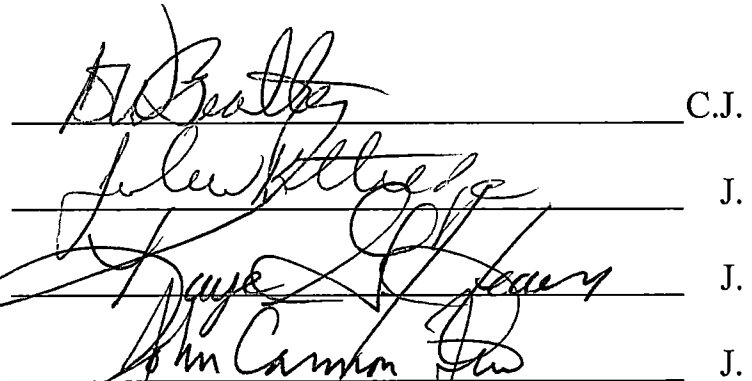 DW Beatty C.J.
John W Kittredge J.
Kaye G Hearn J.
John Cannon Few J.